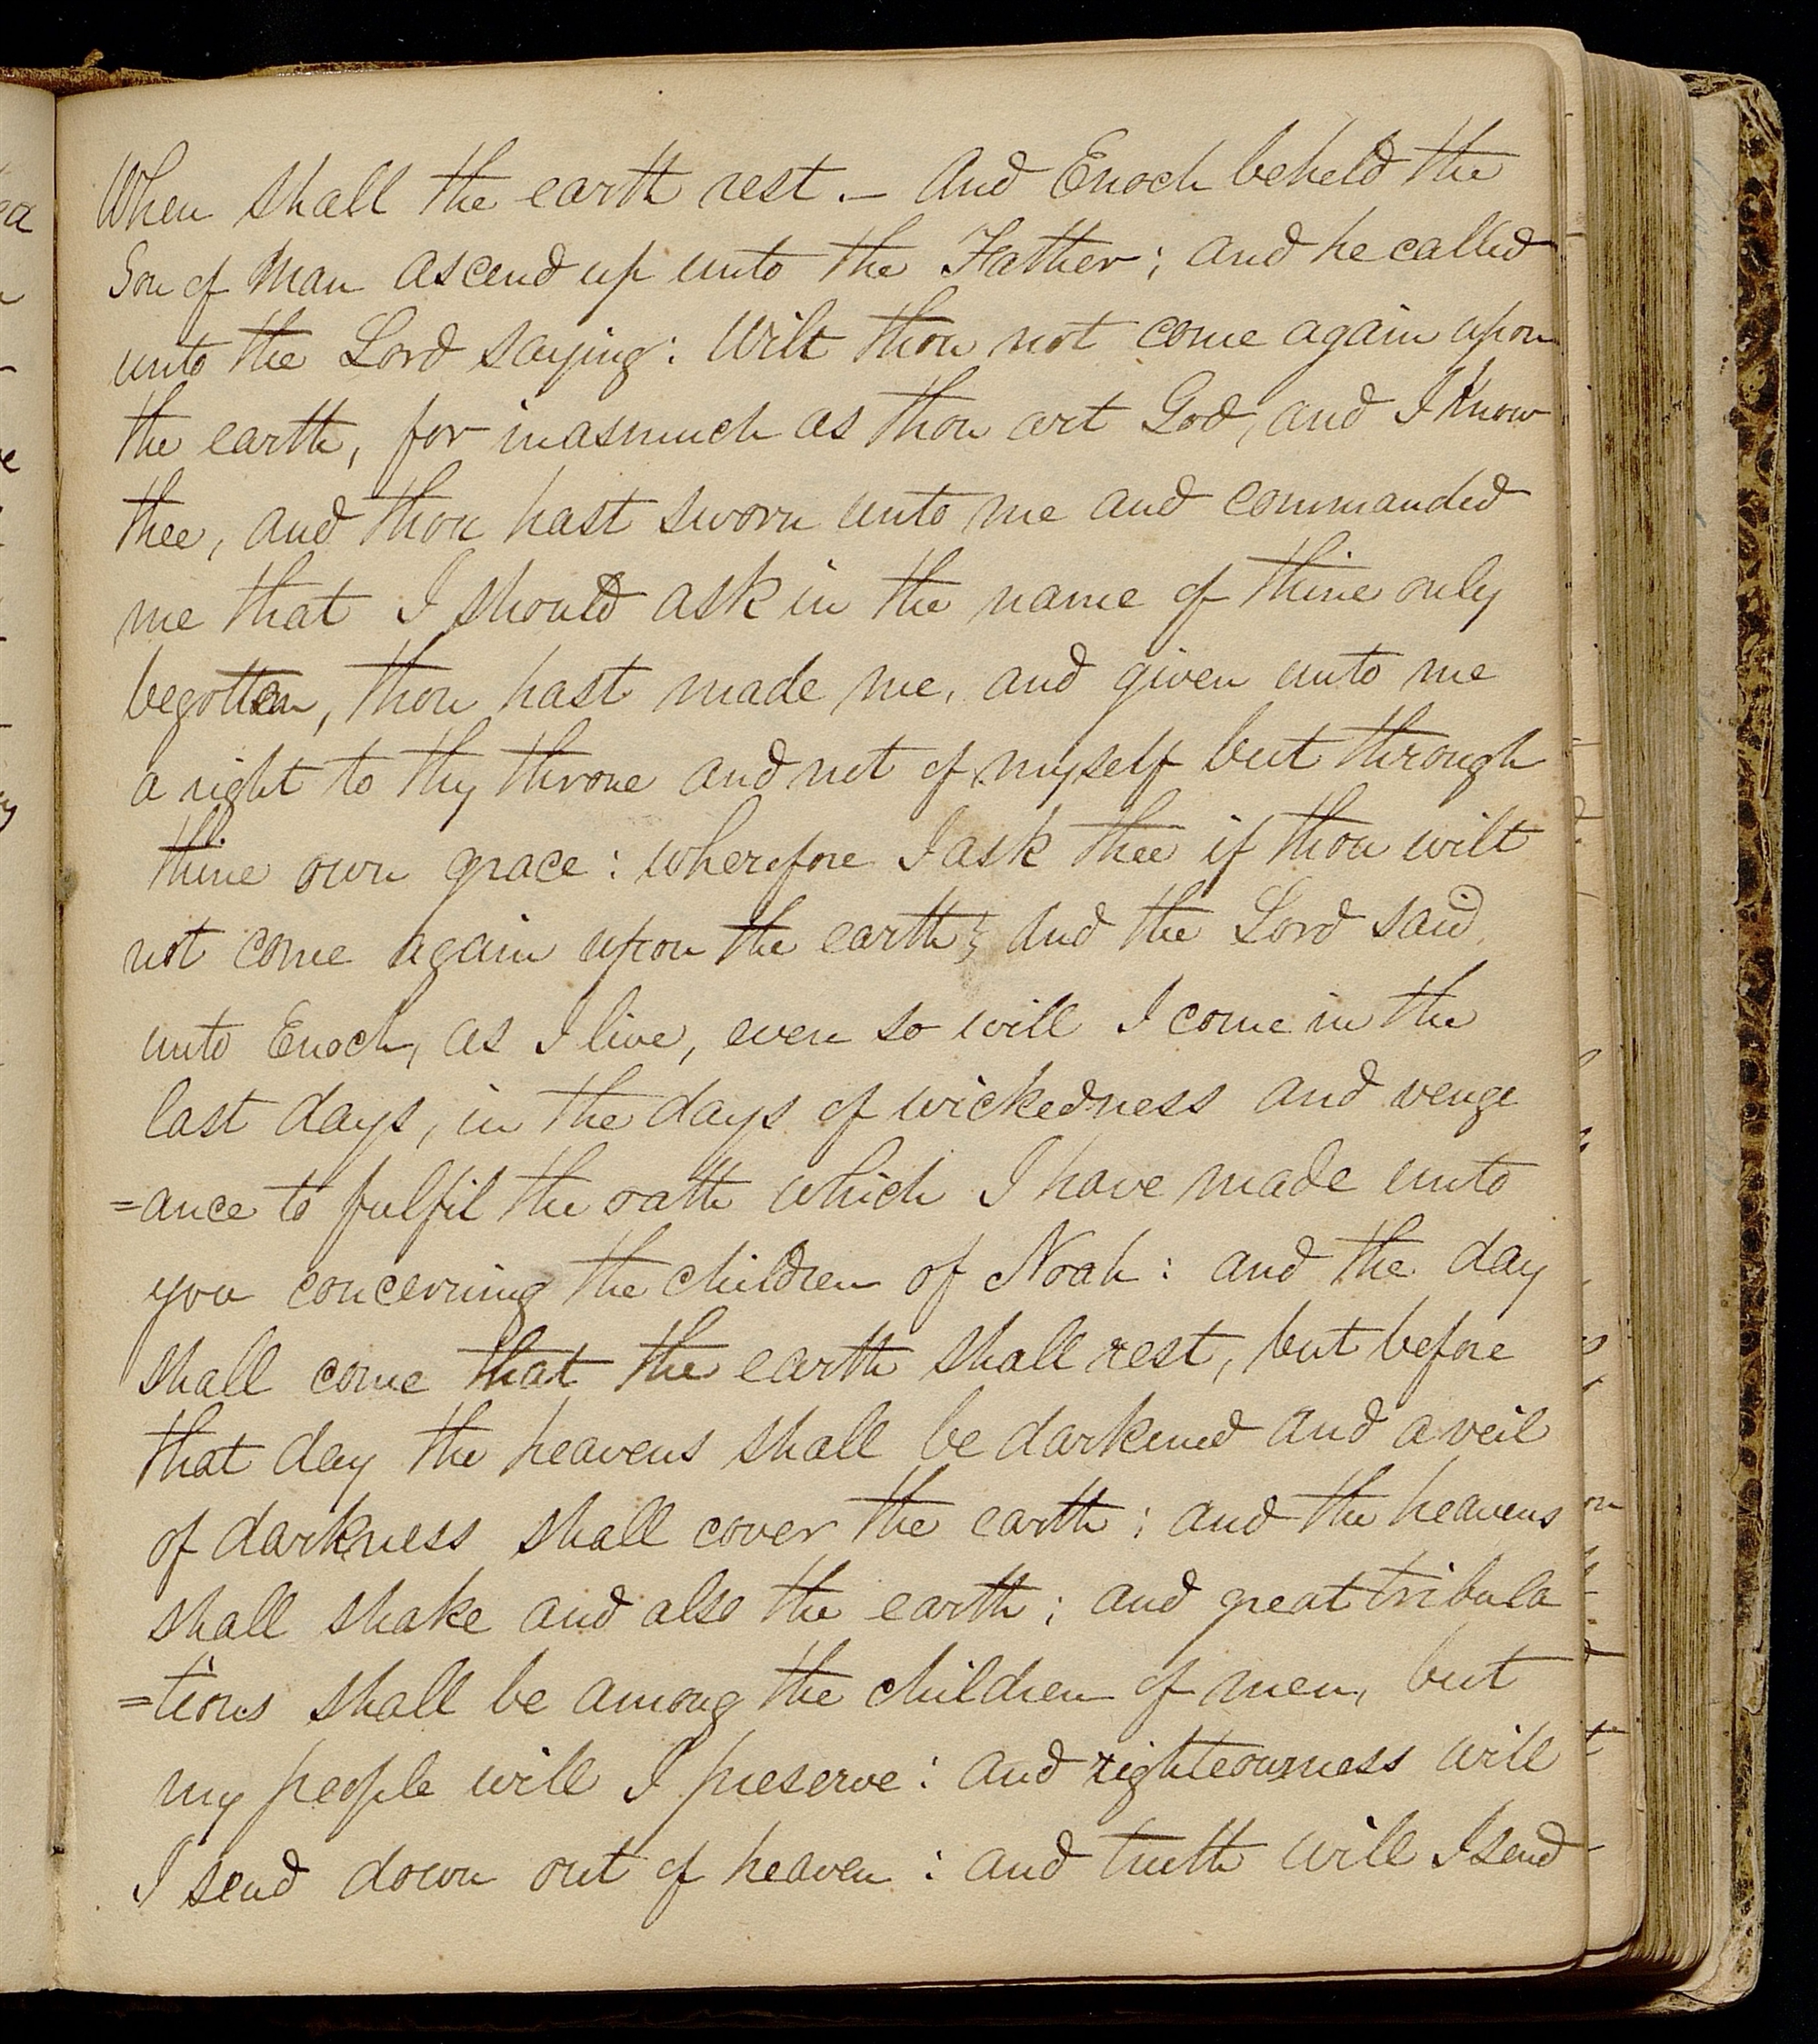 When shall the earth rest.— And Enoch beheld the
Son of Man ascend up unto the Father; and he called
unto the Lord saying: Wilt thou not come again upon
the earth, for inasmuch as thou art God, and I know
thee, and thou hast sworn unto me and commanded
me that I should ask in the name of thine only
begotten, thou hast made me, and given unto me
a right to thy throne and not of myself but through
thine own grace: wherefore I ask thee if thou wilt
not come again upon the earth; And the Lord said
unto Enoch, as I live, even so will I come in the
last days, in the days of wickedness and venge
=ance to fulfil the oath which I have made unto
you concerning the children of Noah: and the day
shall come that the earth shall rest, but before
that day the heavens shall be darkened and a veil
of darkness shall cover the earth; and the heavens
shall shake and also the earth; and great tribula
=tions shall be among the children of men, but
my people will I preserve: and righteousness will
I send down out of heaven: and truth will I send